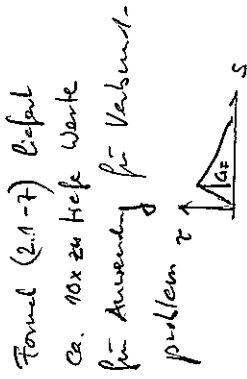 Formel (2.1-7) liefert
ca. 10x zu tiefe Werte
für Anwendung für Verbund-
problem
τ
G_F
s